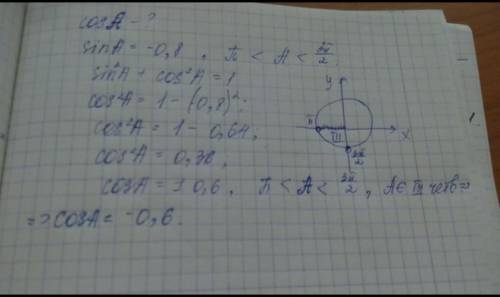 cosA - ?
sinA = -0,8 , П < A < 3π/2
sin²A + cos²A = 1
cos²A = 1 - (0,8)²;
cos²A = 1 - 0,64,
cos²A = 0,36,
cosA = ± 0,6, П < A < 3π/2, A ∈ III четв =>
=> cosA = -0,6.
y
π
III
x
3π/2